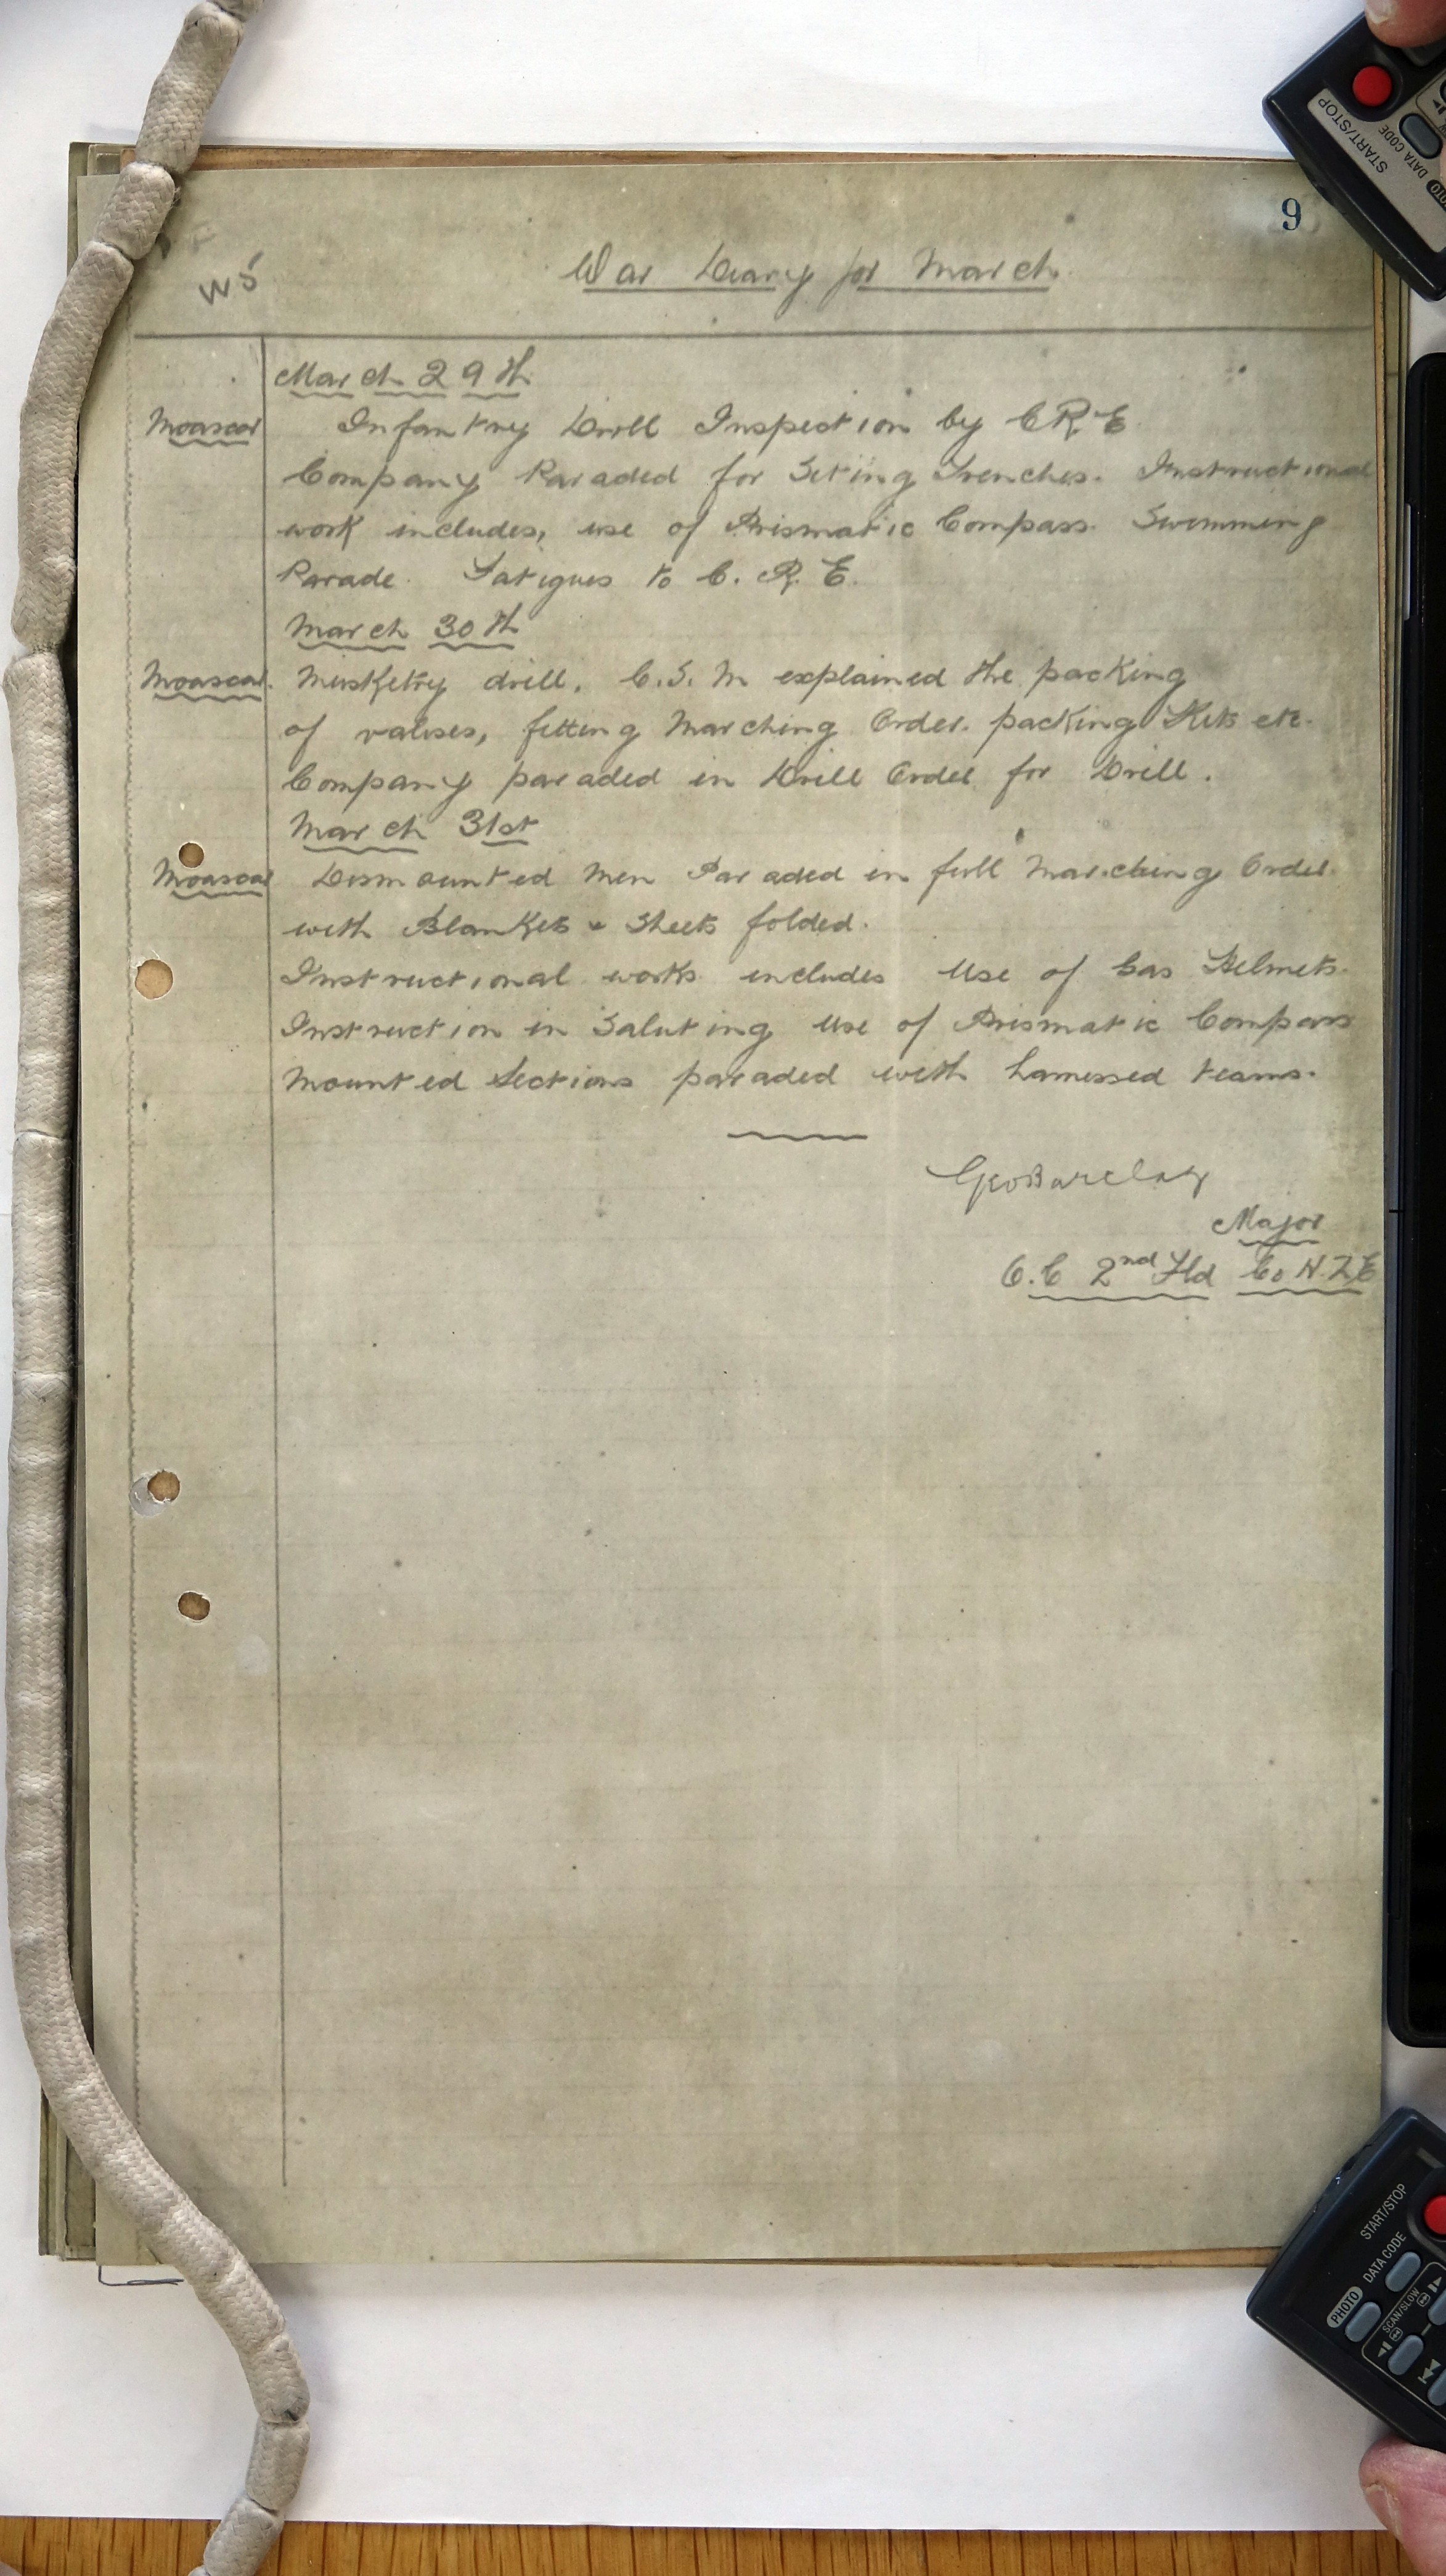 9
W5
War Diary for March
March 29th
Moascar Infantry Drill Inspection by C R E
Company Paraded for Siting Trenches. Instructional
work includes, use of Prismatic Compass. Swimming
Parade. Fatigues to C. R. E.
March 30th
Moascar. Musketry drill. C.S.M explained the packing
of valises, fitting Marching Order. packing Kits etc.
Company paraded in Drill Order for Drill.
March 31st
Moascar Dismounted Men Paraded in full Marching Order.
with Blankets & Sheets folded.
Instructional works includes Use of Gas Helmets.
Instruction in Saluting Use of Prismatic Compass
Mounted Sections paraded with harnessed teams.
Geo Barclay
Major
O.C 2nd Fld Co N.Z.E
START/STOP
DATA CODE
START/STOP
DATA CODE
PHOTO
SCAN/SLOW